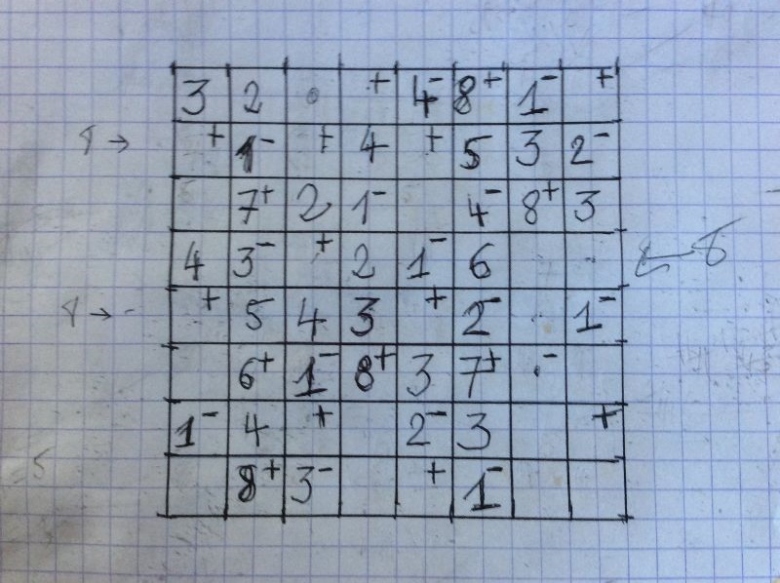 3 2 + 4- 8+ 1- +
+ 1- + 4 + 5 3 2-
7+ 2 1- 4- 8+ 3
4 3- + 2 1- 6
+ 5 4 3 + 2- 1-
6+ 1- 8+ 3 7+ -
1- 4 + 2- 3 +
5
8+ 3- + 1-